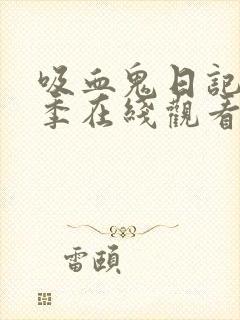 吸血鬼日記
季在綫觀看
雷頤